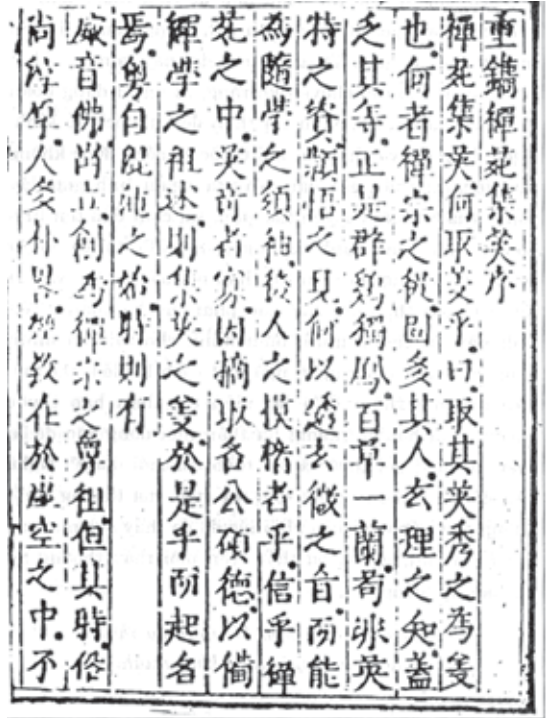 重鐫禪苑集英序
禪苑集英何取義乎曰取其英秀之為義
也何者禪宗之從固多其人玄理之知蓋
乏其等正是群鷄獨鳳百草一蘭苟非英
特之資穎悟之見何以透玄微之旨而能
為隨學之領袖後人之模楷者乎信乎禪
苑之中英奇者寡因摘取名公碩德以備
禪學之祖述則集英之義於是乎而起名
焉粵自混沌之始時則有
威音佛立創為禪宗之鼻祖但其時俗
尚淳厚人多朴略教在於虛空之中不